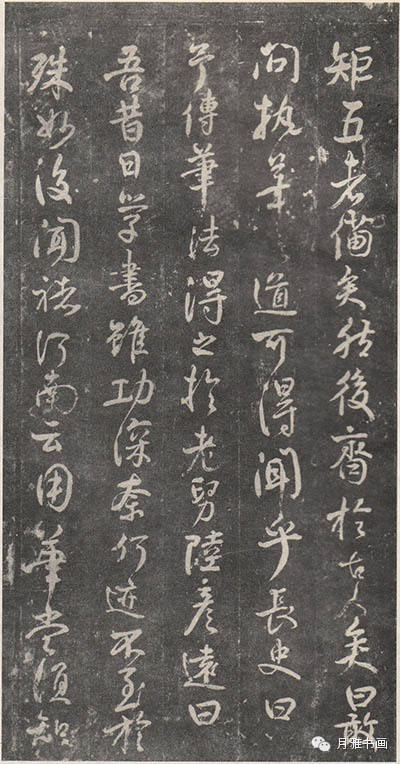 矩五者備矣然後齊於古人矣曰敢
問執筆之道可得聞乎長史曰
予傳筆法得之於老舅陸彥遠曰
吾昔日學書雖功深奈何迹不至於
殊妙後聞褚河南云用筆當須知
月雅书画